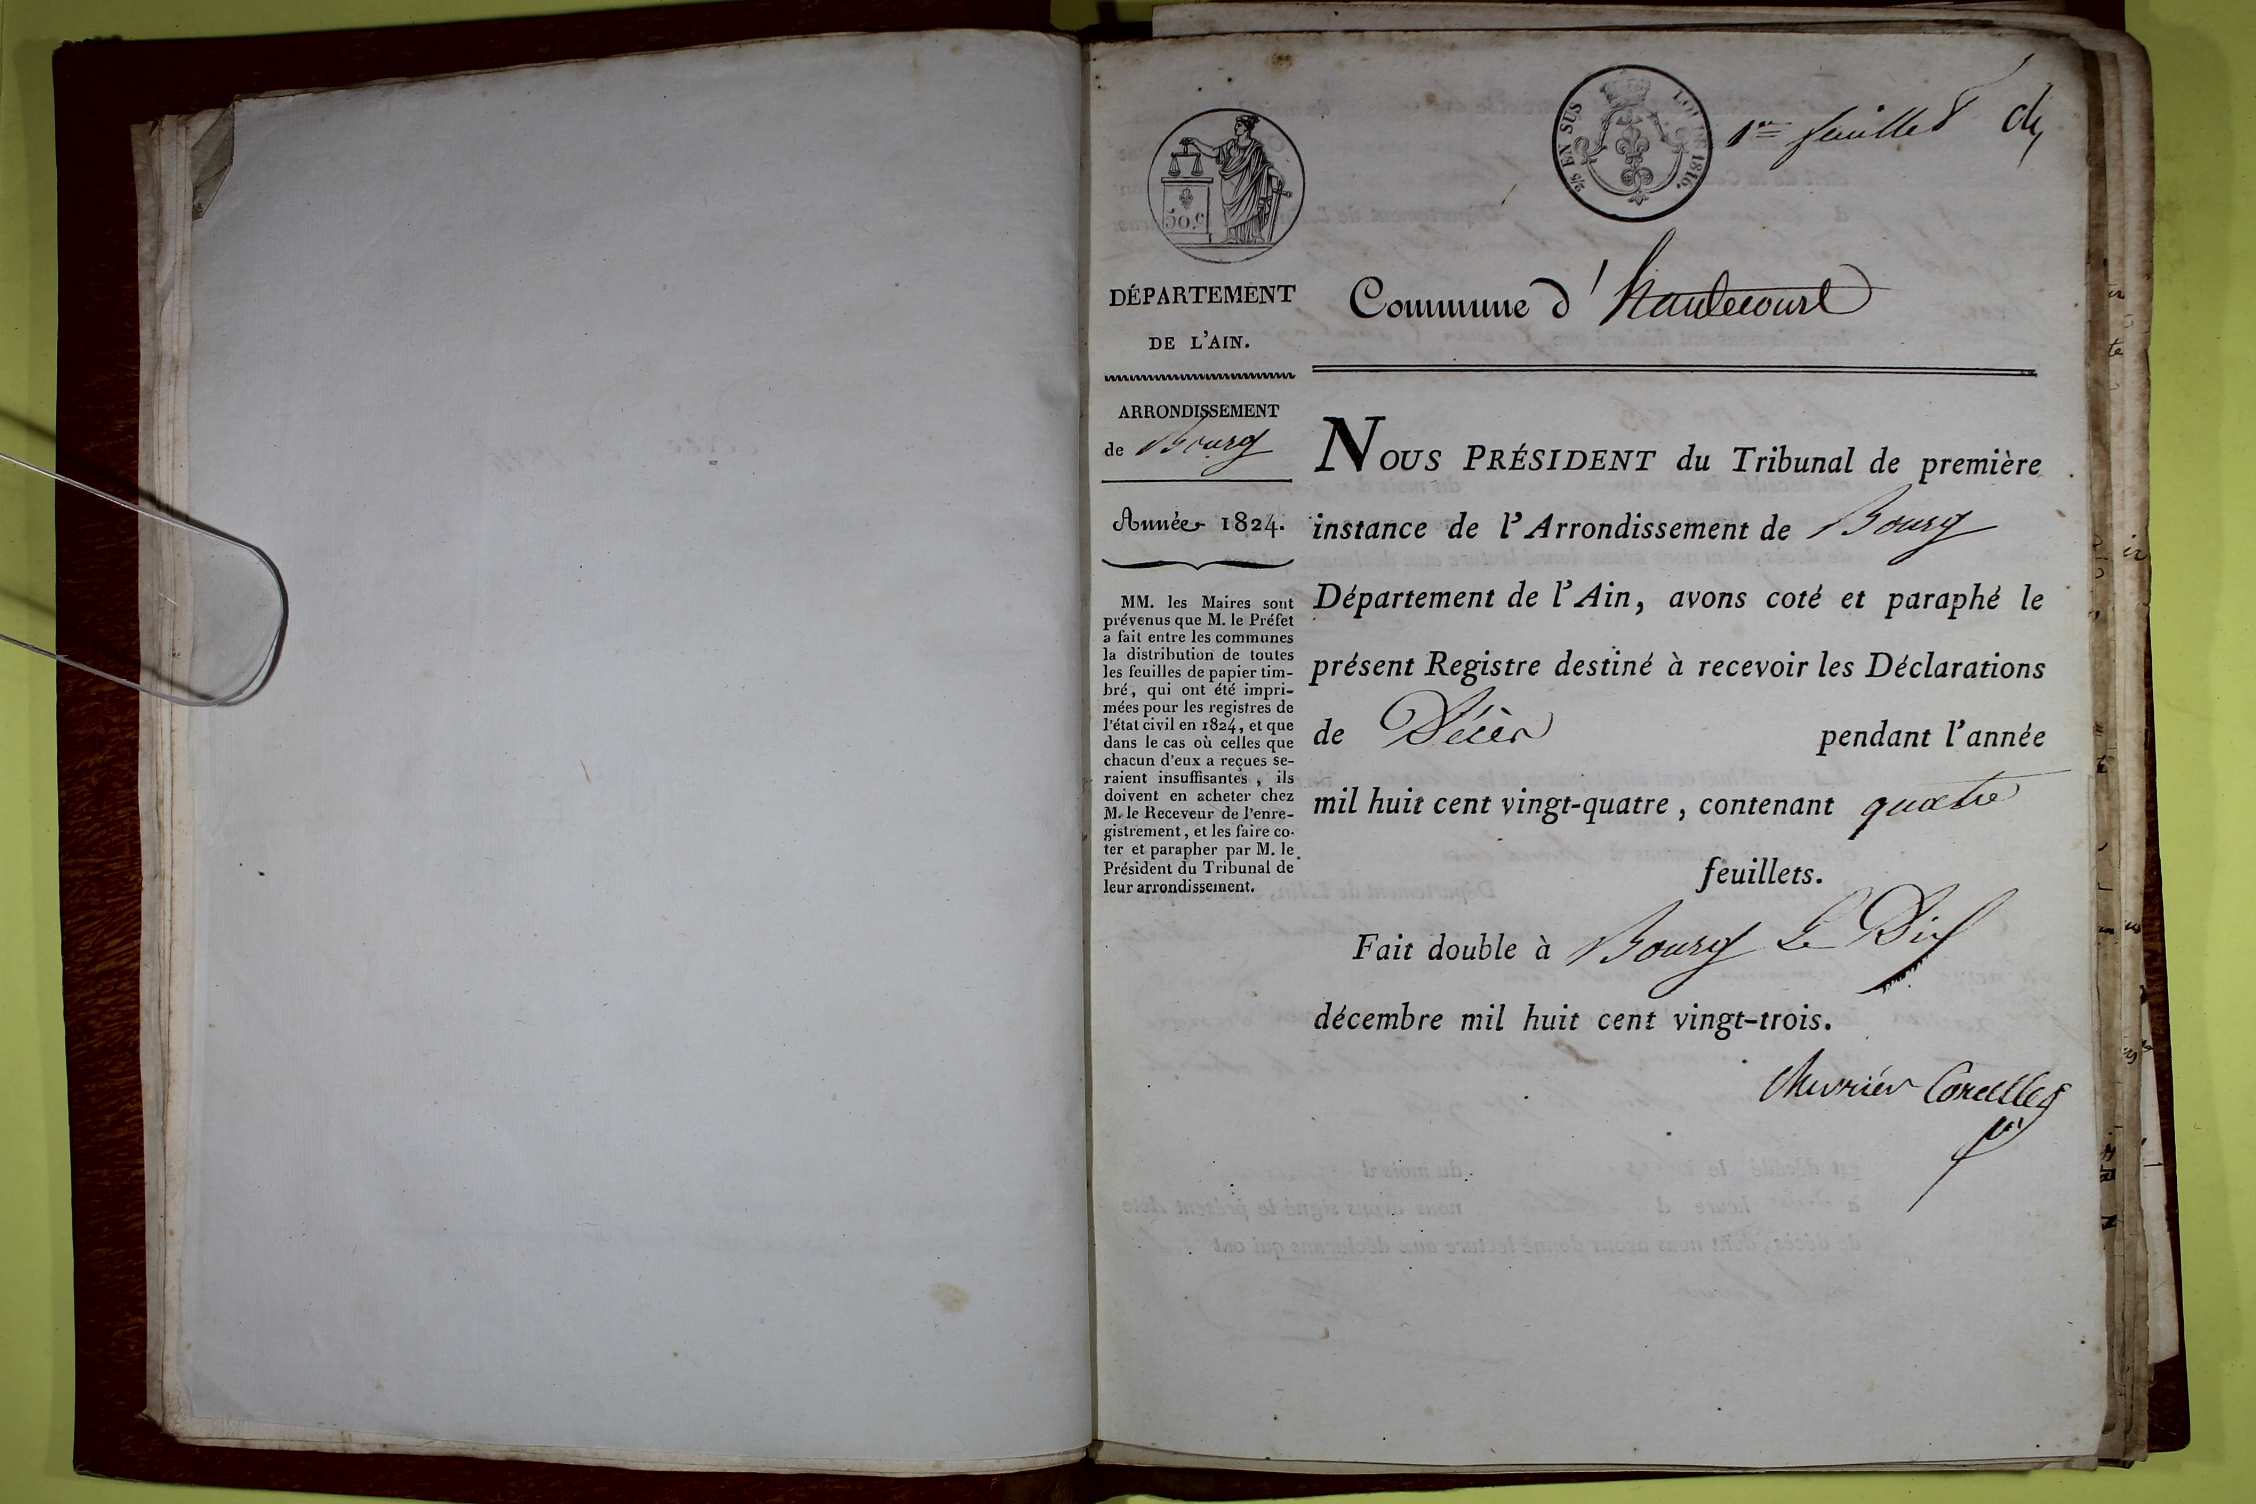 2/5 EN SUS
LOI DE 1816.
1er feuillet
50.c
DÉPARTEMENT
DE L'AIN.
ARRONDISSEMENT
de Bourg
Année 1824.
MM. les Maires sont
prévenus que M. le Préfet
a fait entre les communes
la distribution de toutes
les feuilles de papier tim-
bré, qui ont été impri-
mées pour les registres de
l'état civil en 1824, et que
dans le cas où celles que
chacun d'eux a reçues se-
raient insuffisantes, ils
doivent en acheter chez
M. le Receveur de l'enre-
gistrement, et les faire co-
ter et parapher par M. le
Président du Tribunal de
leur arrondissement.
Commune d'hautecourt
NOUS PRÉSIDENT du Tribunal de première
instance de l'Arrondissement de Bourg
Département de l'Ain, avons coté et paraphé le
présent Registre destiné à recevoir les Déclarations
de Décès pendant l'année
mil huit cent vingt-quatre, contenant quatre
feuillets.
Fait double à Bourg Le Dix
décembre mil huit cent vingt-trois.
Chevrier Corcelles